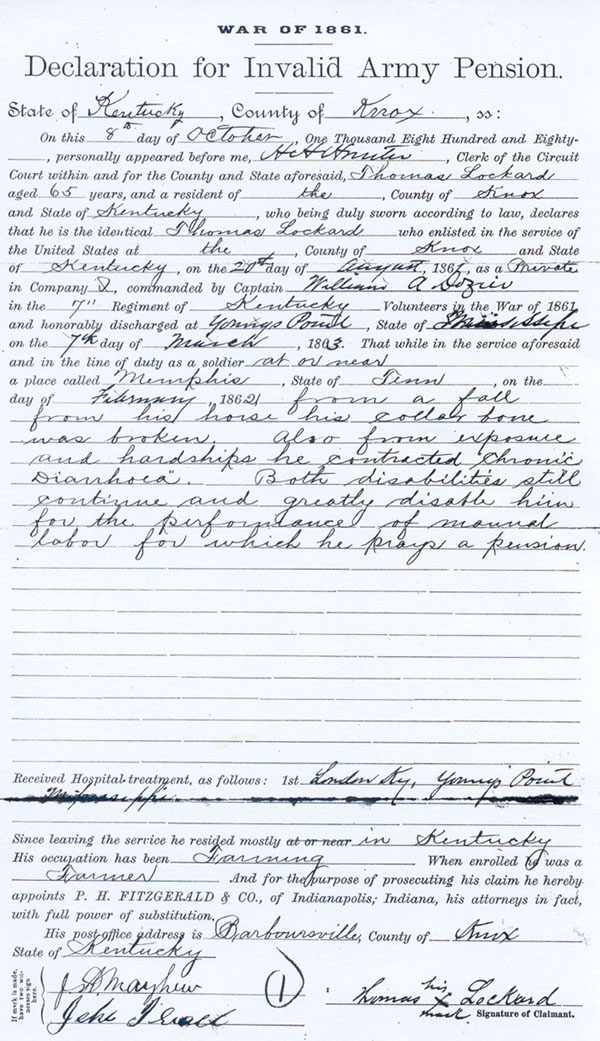 WAR OF 1861.
Declaration for Invalid Army Pension.
State of Kentucky, County of Knox, ss:
On this 8th day of October, One Thousand Eight Hundred and Eighty-
, personally appeared before me, H H Hunter, Clerk of the Circuit
Court within and for the County and State aforesaid, Thomas Lockard
aged 65 years, and a resident of the, County of Knox
and State of Kentucky, who being duly sworn according to law, declares
that he is the identical Thomas Lockard who enlisted in the service of
the United States at the, County of Knox and State
of Kentucky, on the 20th day of August, 1861, as a Private
in Company, commanded by Captain William A Dozier
in the 7" Regiment of Kentucky Volunteers in the War of 1861,
and honorably discharged at Youngs Point, State of Mississippi
on the 7th day of March, 1863. That while in the service aforesaid
and in the line of duty as a soldier at or near
a place called Memphis, State of Tenn, on the
day of February, 1862 from a fall
from his horse his collar bone
was broken. Also from exposure
and hardships he contracted "Chronic
Diarrhoea". Both disabilities still
continue and greatly disable him
for the performance of manual
labor for which he prays a pension.
Received Hospital treatment, as follows: 1st London Ky, Young's Point
Mississippi
Since leaving the service he resided mostly at or near in Kentucky
His occupation has been Farming When enrolled he was a
Farmer And for the purpose of prosecuting his claim he hereby
appoints P. H. FITZGERALD & CO., of Indianapolis; Indiana, his attorneys in fact,
with full power of substitution.
His post-office address is Barboursville, County of Knox
State of Kentucky
If mark is made, have two witnesses sign here.
Mayhew
1
Thomas his x mark Lockard
Signature of Claimant.